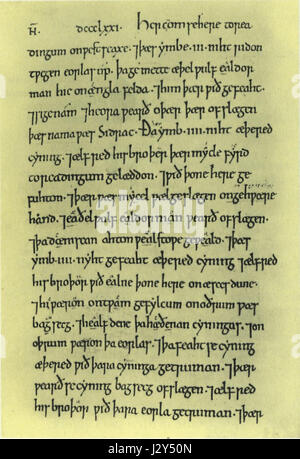 AN̄. DCCCLXXI. Her com se here to rea
dingum on westseaxe. ⁊ þæs ymbe .iii. niht ridon
twegen eorlas up. þa gemette æþelwulf ealdor
man hie on engla felda. ⁊ him þær wið gefeaht.
⁊ sige nam. ⁊ heora wearð oþær þær ofslægen
þæs nama wæs Sidrac. Ða ymb .iiii. niht æþered
cyning. ⁊ ælfred his broþer þær mycle fyrd
to readingum gelæddon. ⁊ wið þone here ge
fuhton. ⁊ þær wæs mycel wæl geslægen on gehwæþere
hand. ⁊ æðelwulf ealdorman wearð ofslægen.
⁊ þa deniscan ahton wælstowe geweald. ⁊ þæs
ymb .iiii. nyht gefeaht æþered cyning ⁊ ælfred
his broþur wið ealne þone here on æscesdune.
⁊ hi wæron on twam gefylcum on oðrum wæs
bagsecg. ⁊ healfdene þa hæðenan cyningas. ⁊ on
oþrum wæron þa eorlas. ⁊ þa feaht se cyning
æþered wið þara cyninga getruman. ⁊ þær
wearð se cyning bagsecg ofslægen. ⁊ ælfred
his broþor wið þara eorla getruman. ⁊ þær
alamy
Image ID: J2Y50N
www.alamy.com